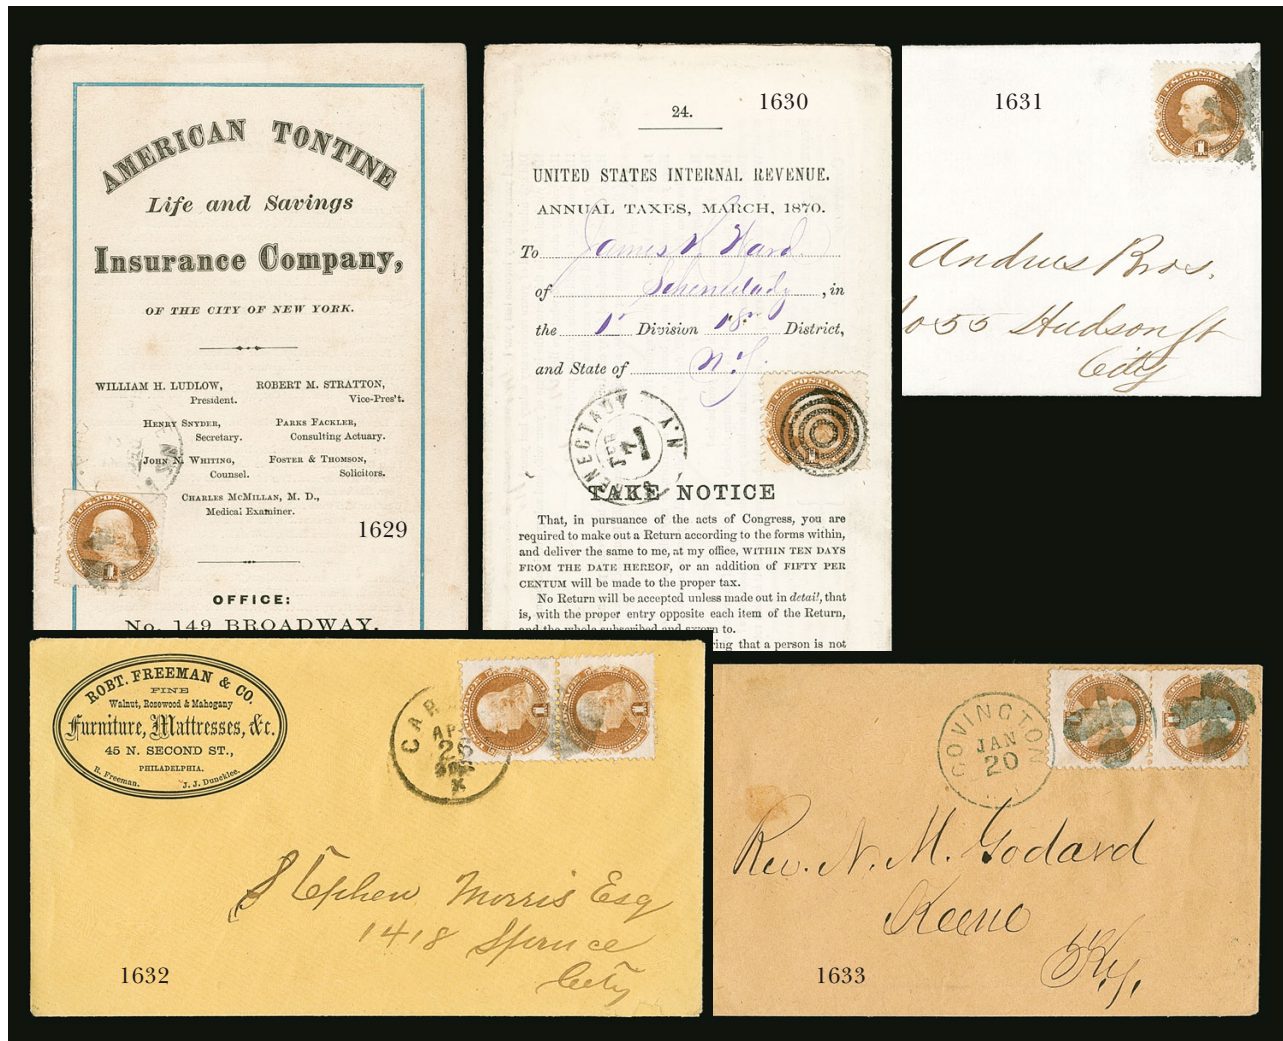 AMERICAN TONTINE
Life and Savings
Insurance Company,
OF THE CITY OF NEW YORK.
WILLIAM H. LUDLOW,
President.
ROBERT M. STRATTON,
Vice-Pres't.
HENRY SNYDER,
Secretary.
PARKS FACKLER,
Consulting Actuary.
JOHN N. WHITING,
Counsel.
FOSTER & THOMSON,
Solicitors.
CHARLES MCMILLAN, M. D.,
Medical Examiner.
U.S. POSTAGE
1
1629
OFFICE:
No. 149 BROADWAY.
24.
1630
UNITED STATES INTERNAL REVENUE.
ANNUAL TAXES, MARCH, 1870.
To James V. Ward
of Schenectady, in
the 1st Division 18th District,
and State of N.Y.
U.S. POSTAGE
1
SCHENECTADY N.Y.
FEB
7
TAKE NOTICE
That, in pursuance of the acts of Congress, you are
required to make out a Return according to the forms within,
and deliver the same to me, at my office, WITHIN TEN DAYS
FROM THE DATE HEREOF, or an addition of FIFTY PER
CENTUM will be made to the proper tax.
No Return will be accepted unless made out in detail, that
is, with the proper entry opposite each item of the Return,
and the whole subscribed and sworn to.
ring that a person is not
1631
U.S. POSTAGE
1
Andrus Bros.
55 Hudson St
City
ROBT. FREEMAN & CO.
FINE
Walnut, Rosewood & Mahogany
Furniture, Mattresses, &c.
45 N. SECOND ST.,
PHILADELPHIA.
R. Freeman. J. J. Duncklee.
CAR
AP
26
1
1
Stephen Morris Esq
1418 Spruce
City
1632
COVINGTON
JAN
20
Rev. N. M. Godard
Keene
Ky.
1633